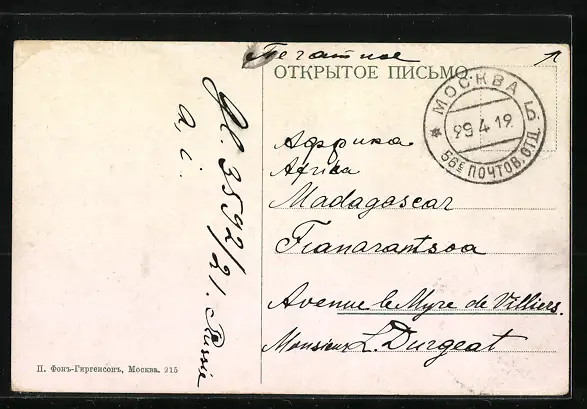 Печатное
ОТКРЫТОЕ ПИСЬМО.
МОСКВА 5
29 4 12
56Е ПОЧТОВ. ОТД.
Африка
Africa
Madagascar
Fianarantsoa
Avenue le Myre de Villiers.
Monsieur L. Durgeat
3592/21. Russie
a. c.
П. Фонъ-Гиргенсонъ, Москва. 215